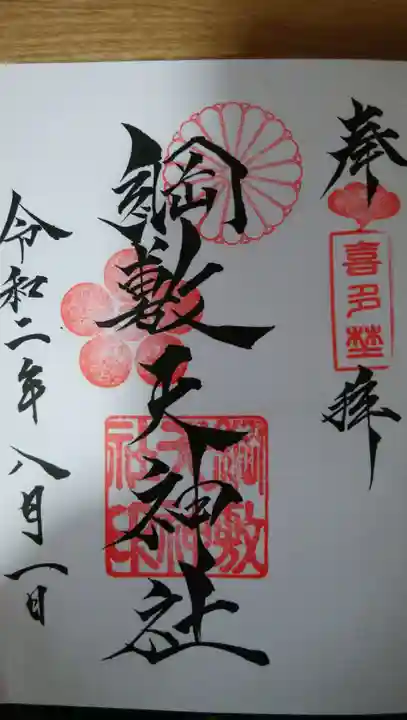 奉拝
喜多埜
綱敷天神社
綱敷天神社印
令和二年八月一日